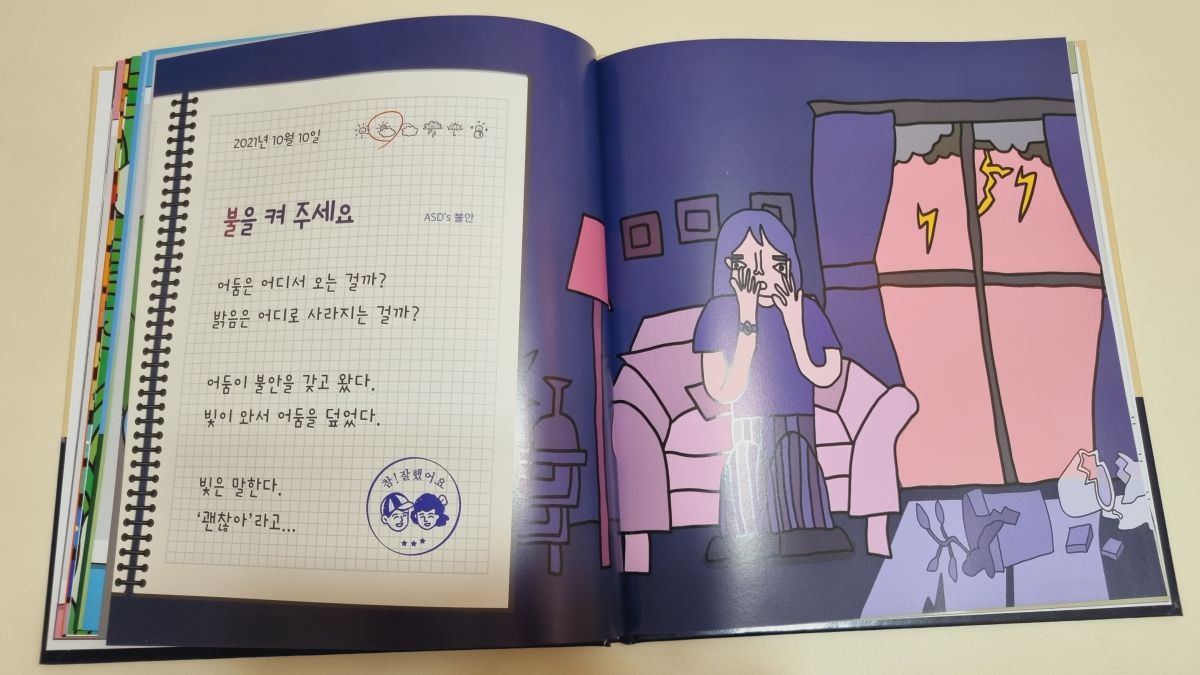 2021년 10월 10일
불을 켜 주세요
ASD's 불안
어둠은 어디서 오는 걸까?
밝음은 어디로 사라지는 걸까?
어둠이 불안을 갖고 왔다.
빛이 와서 어둠을 덮었다.
빛은 말한다.
'괜찮아'라고...
참!잘했어요